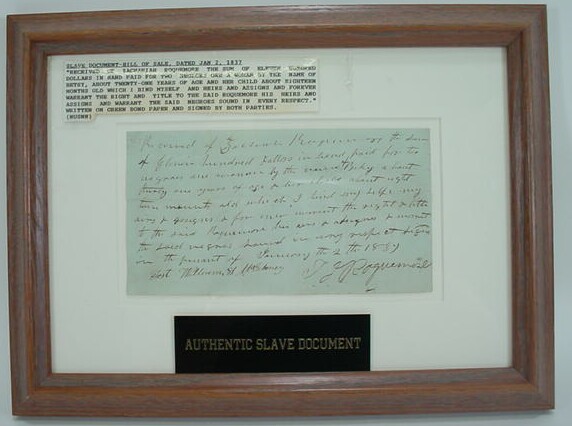 SLAVE DOCUMENT-BILL OF SALE, DATED JAN 2, 1837
"RECEIVED OF ZACHARIAH ROQUEMORE THE SUM OF ELEVEN HUNDRED
DOLLARS IN HAND PAID FOR TWO NEGROES ONE A WOMAN BY THE NAME OF
BETSY, ABOUT TWENTY-ONE YEARS OF AGE AND HER CHILD ABOUT EIGHTEEN
MONTHS OLD WHICH I BIND MYSELF AND HEIRS AND ASSIGNS AND FOREVER
WARRANT THE RIGHT AND TITLE TO THE SAID ROQUEMORE HIS HEIRS AND
ASSIGNS AND WARRANT THE SAID NEGROES SOUND IN EVERY RESPECT."
WRITTEN ON GREEN BOND PAPER AND SIGNED BY BOTH PARTIES.
Received of Roquemore the sum
of Eleven hundred Dollars in hand paid for two
negroes one woman by the name Betsy about
twenty one years of age & her child about eight
teen months old which I bind my self my
heirs & assigns & for ever warrant the right & title
to the said Roquemore his heirs & assigns & warrant
the said negroes sound in every respect
in the of January the 2th 1837
Test William Roquemore
AUTHENTIC SLAVE DOCUMENT